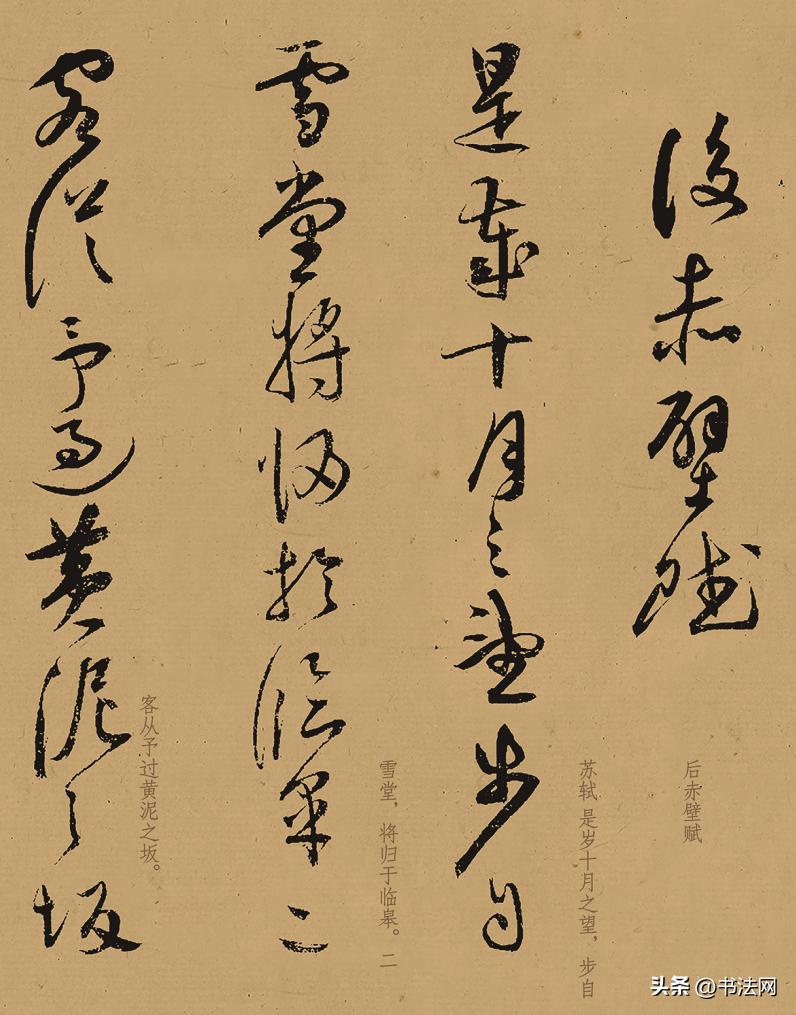 後赤壁賦
是歲十月之望步自
雪堂將歸於臨皋二
客從予過黃泥之坂
后赤壁赋
苏轼 是岁十月之望，步自
雪堂，将归于临皋。二
客从予过黄泥之坂。
头条 @书法网